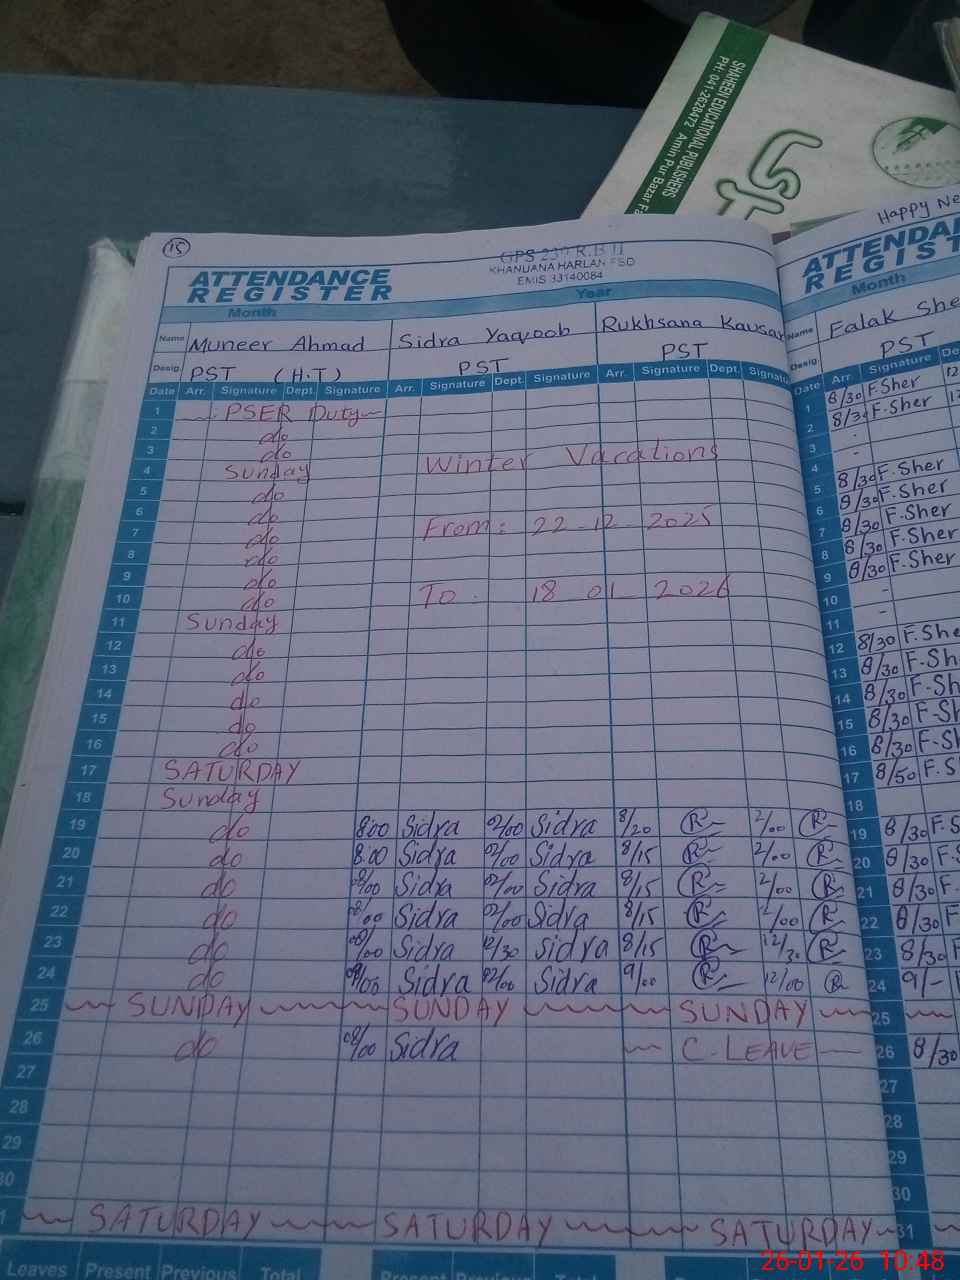 SHAHEEN EDUCATIONAL PUBLISHERS
PH: 041-2628472 Amin Pur Bazar
Happy
15
GPS 239 R.B II
KHANUANA HARLAN FSD
EMIS 33140084
ATTENDANCE
REGISTER
Month Year
Name Muneer Ahmad Sidra Yaqoob Rukhsana Kausar
Desig. PST (H.T) PST PST
Date Arr. Signature Dept. Signature Arr. Signature Dept. Signature Arr. Signature Dept.
1 PSER Duty
2 do
3 do
4 Sunday Winter Vacations
5 do
6 do
7 do From: 22-12-2025
8 do
9 do
10 do To: 18 01 2026
11 Sunday
12 do
13 do
14 do
15 do
16 do
17 SATURDAY
18 Sunday
19 do 8:00 Sidra 02/00 Sidra 8/20 R 2/00 R
20 do 8:00 Sidra 02/00 Sidra 8/15 R 2/00 R
21 do 08/00 Sidra 02/00 Sidra 8/15 R 2/00 R
22 do 08/00 Sidra 02/00 Sidra 8/15 R 2/00 R
23 do 08/00 Sidra 12/30 Sidra 8/15 R 12/30 R
24 do 09/00 Sidra 02/00 Sidra 9/00 R 12/00 R
25 SUNDAY SUNDAY SUNDAY
26 do 08/00 Sidra C-LEAVE
27
28
29
30
SATURDAY SATURDAY SATURDAY
Leaves Present Previous Total Present Previous Total
REGISTER
Month
Name Falak
Desig. PST
Date Arr. Signature
1 8/30 F.Sher
2 8/30 F.Sher
3 -
4 -
5 8/30 F.Sher
6 8/30 F.Sher
7 8/30 F.Sher
8 8/30 F.Sher
9 8/30 F.Sher
10 -
11 -
12 8/30
13 8/30
14 8/30
15 8/30
16 8/30
17 8/50
18
19 8/30
20 8/30
21 8/30
22 8/30
23 8/30
24 9/-
25
26 8/30
27
28
29
30
31
26-01-26 10:48